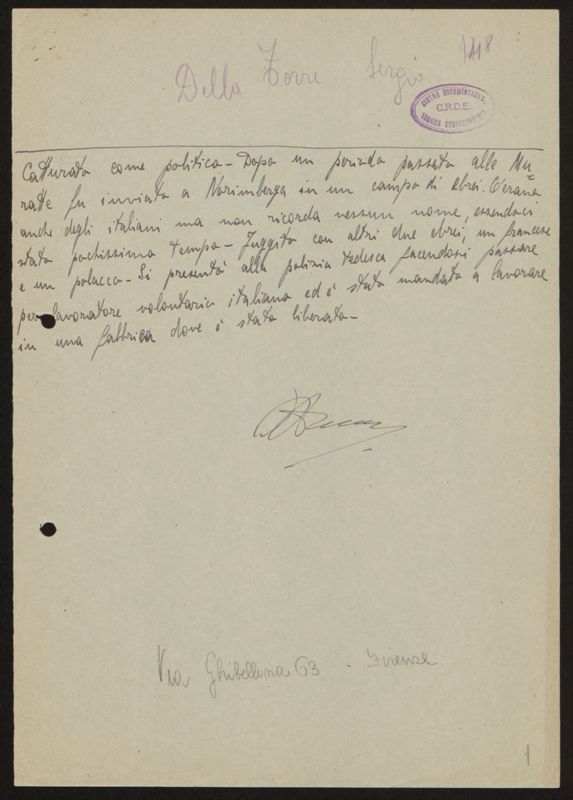 Della Torre Sergio
1418
CENTRO DOCUMENTAZIONE
C.R.D.E.
EBRAICA CONTEMPORANEA
Catturato come politico - Dopo un periodo passato alle Mu=
ratte fu inviato a Norimberga in un campo di ebrei. C'erano
anche degli italiani ma non ricorda nessun nome, essendoci
stato pochissimo tempo - Fuggito con altri due ebrei, un francese
e un polacco - Si presentò alla polizia tedesca facendosi passare
per lavoratore volontario italiano ed è stato mandato a lavorare
in una fabbrica dove è stato liberato -
Via Ghibellina 63 - Firenze
1